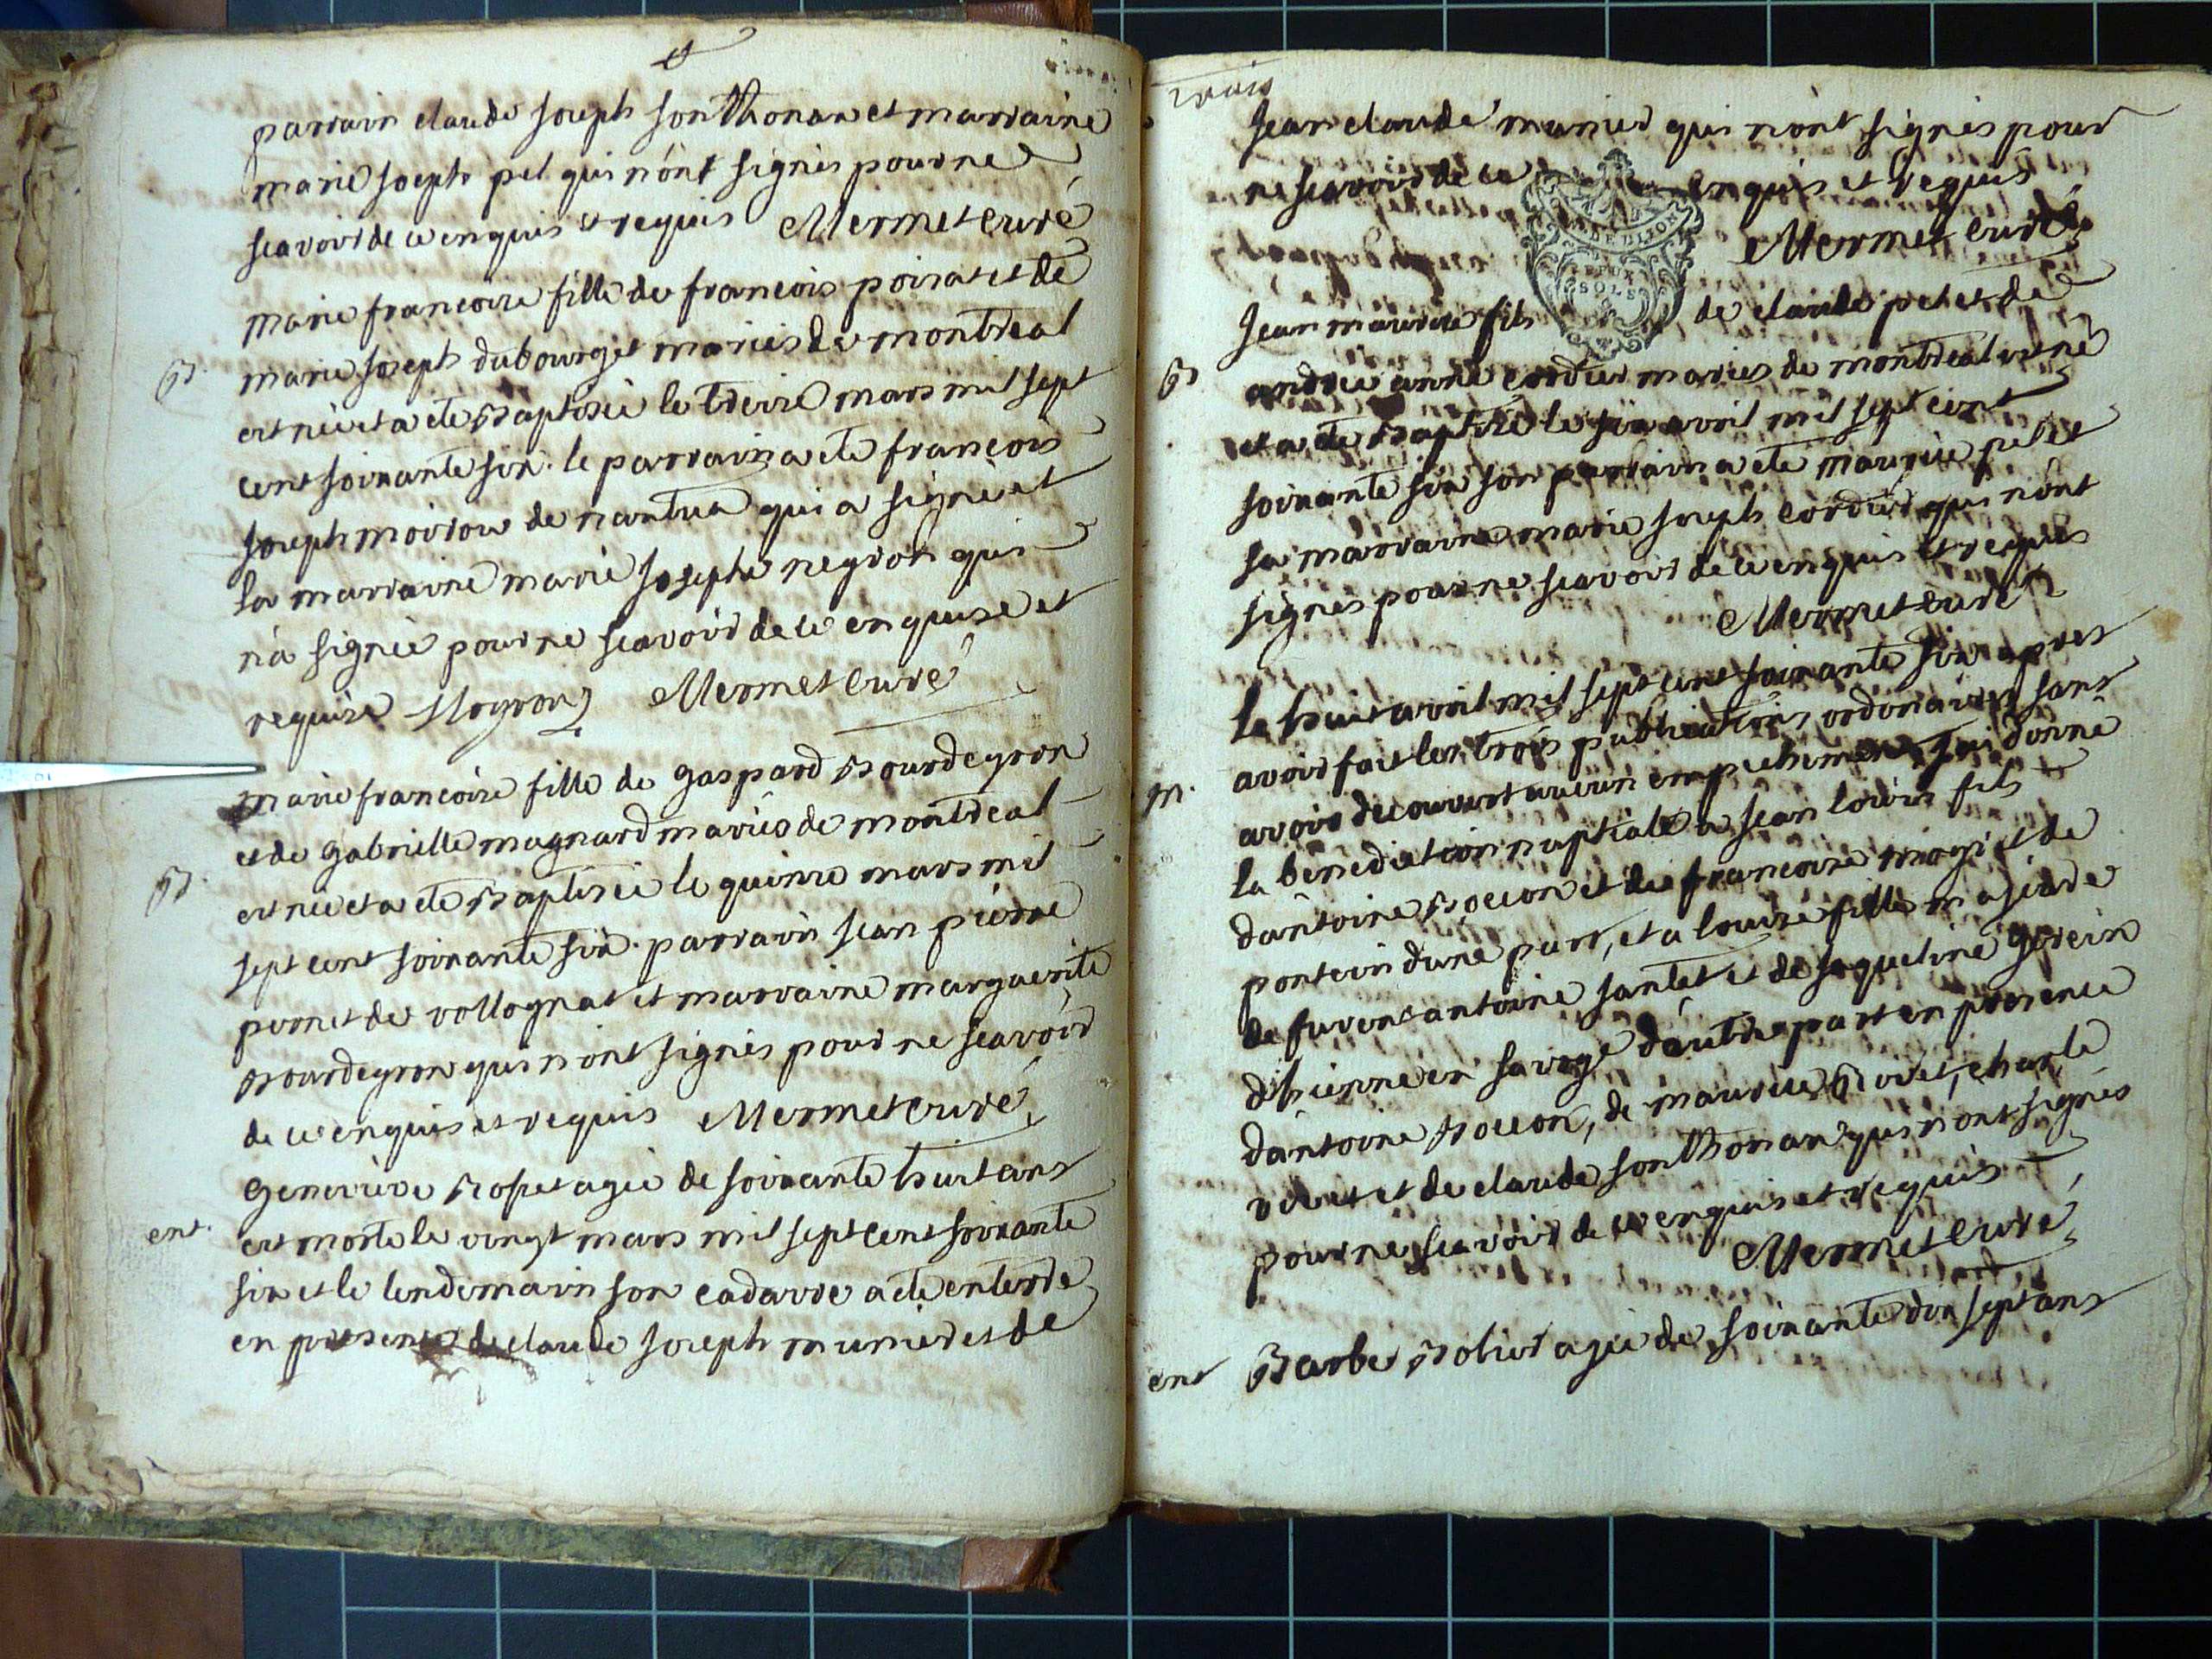 parrain claude joseph sonthonax et marraine
marie joseph pel qui n'ont signés pour ne
scavoir de ce enquis et requis Mermet curé
B. marie francoise fille de francois poisat et de
marie joseph dubourget mariés de montreal
est née et a eté baptisée le treize mars mil sept
cent soixante six. le parrain a eté francois
joseph moirou de nantua qui a signé et
la marraine marie josephe neyron qui
n'a signée pour ne scavoir de ce enquise et
requise Mermet curé
B. marie francoise fille de gaspard bourdeyron
et de gabrielle magnard mariés de montreal
est née et a eté baptisée le quinze mars mil
sept cent soixante six. parrain jean pierre
pernet de vollognat et marraine marguerite
bourdeyron qui n'ont signés pour ne scavoir
de ce enquis et requis Mermet curé
ent. genevieve ropet agée de soixante huit ans
est morte le vingt mars mil sept cent soixante
six et le lendemain son cadavre a eté enterré
en presence de claude joseph munier et de
trois
jean claude munier qui n'ont signés pour
ne scavoir de ce enquis et requis
Mermet curé
DE DIJON
SOLS
B. jean maurice fils de claude pelet et de
andree anne cordier mariés de montreal est né
et a eté baptisé le six avril mil sept cent
soixante six son parrain a eté maurice pelet
sa marraine marie joseph cordier qui n'ont
signés pour ne scavoir de ce enquis et requis
Mermet curé
le huit avril mil sept cent soixante six apres
avoir fait les trois publications ordinaires sans
m. avoir decouvert aucun empechement j'ai donné
la benediction nuptiale a jean louis fils
d'antoine bocon et de francoise et de
pontcin d'une part, et a louise fille majeure
de antoine jantet et de jaqueline
en savoye d'autre part en presence
d'antoine bocon, de maurice, charle
et de claude sonthonax qui n'ont signés
pour ne scavoir de ce enquis et requis
Mermet curé
ent Barbe bolier agée de soixante dix sept ans